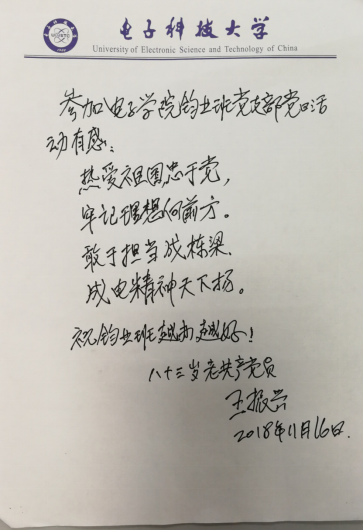 电子科技大学
University of Electronic Science and Technology of China
参加电子学院钧业班党支部党日活
动有感：
热爱祖国忠于党，
牢记理想向前方。
敢于担当成栋梁，
成电精神天下扬。
祝钧业班越办越好！
八十三岁老共产党员
王振
2018年11月16日